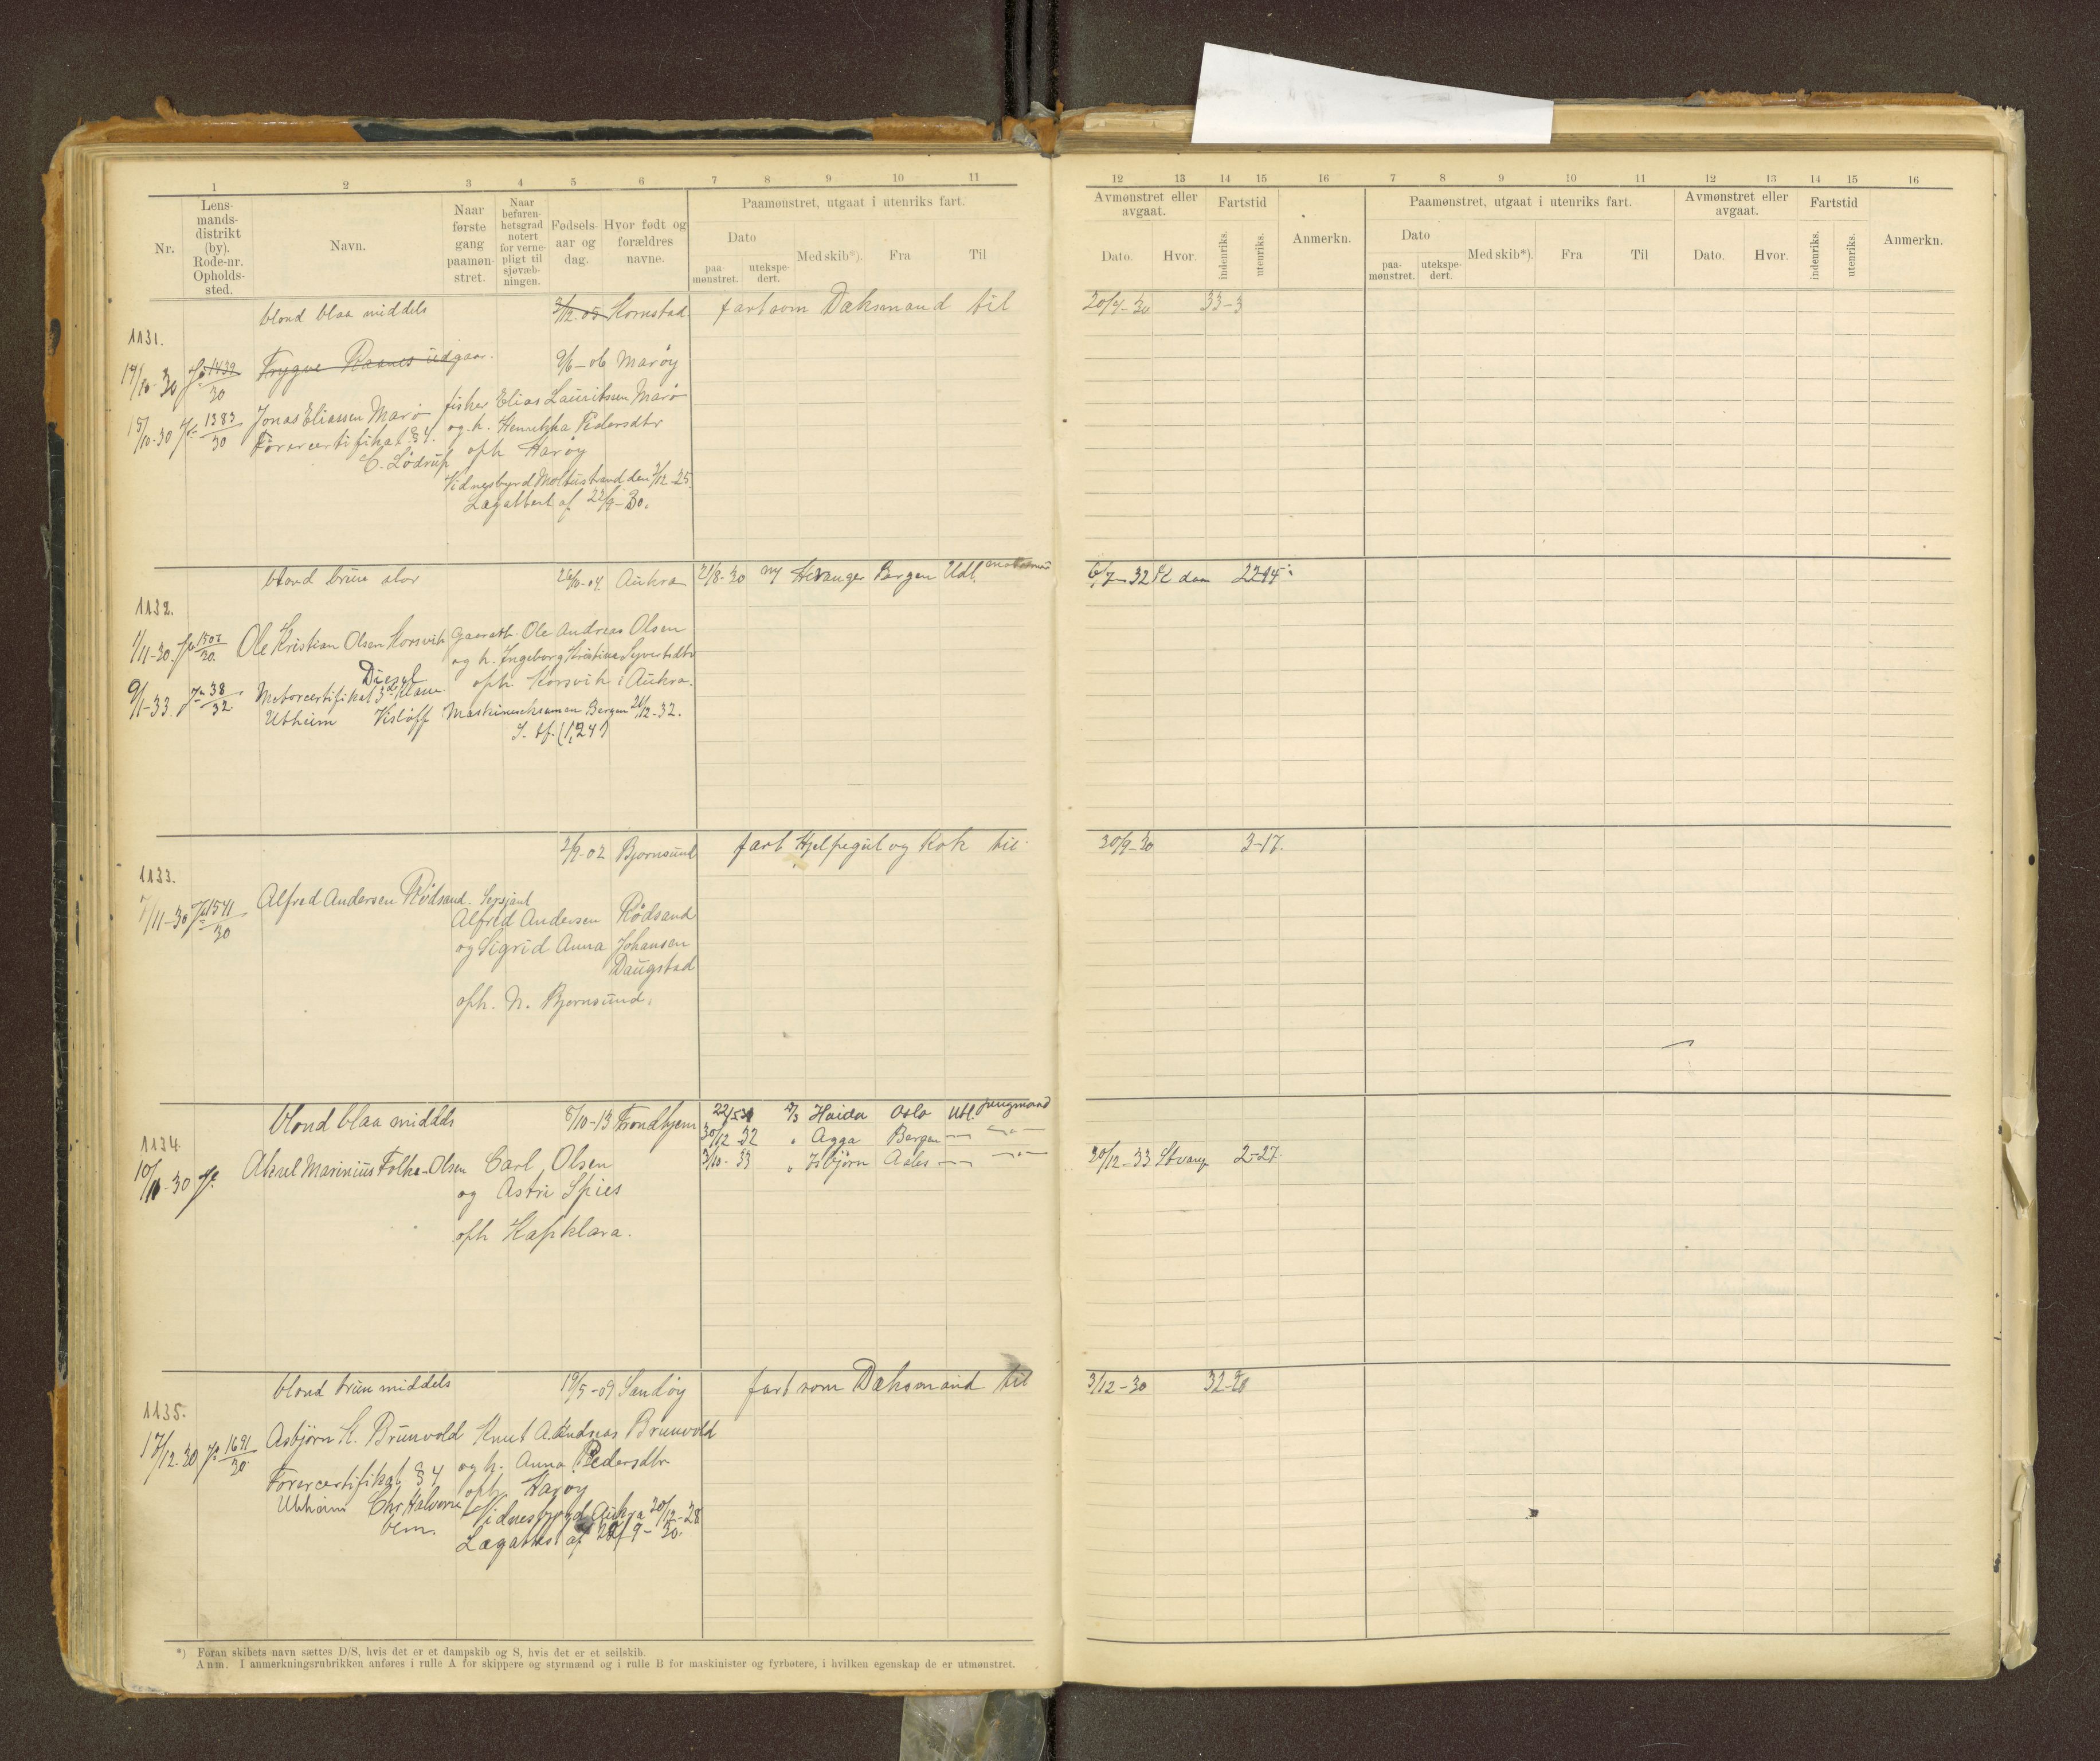 1 2 3 4 5 6 7 8 9 10 11
Nr.
Lens-
mands-
distrikt
(by).
Rode-nr.
Opholds-
sted.
Navn.
Naar
første
gang
paamøn-
stret.
Naar
befaren-
hetsgrad
notert
for verne-
pligt til
sjøvæb-
ningen.
Fødsels-
aar og
dag.
Hvor født og
forældres
navne.
Paamønstret, utgaat i utenriks fart.
Dato
paa-
mønstret.
utekspe-
dert.
Med skib*).
Fra
Til
12 13 14 15 16 7 8 9 10 11 12 13 14 15 16
Avmønstret eller
avgaat.
Dato.
Hvor.
Fartstid
indenriks.
utenriks.
Anmerkn.
Paamønstret, utgaat i utenriks fart.
Dato
paa-
mønstret.
utekspe-
dert.
Med skib*).
Fra
Til
Avmønstret eller
avgaat.
Dato.
Hvor.
Fartstid
indenriks.
utenriks.
Anmerkn.
blond blaa middels 3/12-05 Kornstad fart som Dæksmand til 20/9-30 33-3
1131.
14/10-30 1439/30 Trygve Raanes udgaar. 9/6-06 Marøy
15/10-30 1383/30 Jonas Eliassen Marø fisker Elias Lauritsen Marø
Førercertifikat § 4. og h. Henrikka Pedersdtr
C. Lødrup oph Harøy
Vidnesbyrd Moltustrand den 3/12-25.
Lægattest af 22/9-30.
blond brun stor 26/10-04. Aukra 21/8-30 Heranger Bergen Udl. 6/7-32
1132.
1/11-30 1507/30. Ole Kristian Olsen Korsvik Gaardb. Ole Andreas Olsen
og h. Ingeborg Kristine Syvertsdtr
Diesel oph. Korsvik i Aukra.
9/1-33 38/32 Motorcertifikat 3die Klasse
Utheim Visløff Maskineksamen Bergen 21/12-32.
2/9-02 Bjornsund fart Hjelpegut og Kok til 30/9-30 3-17.
1133.
7/11-30 1541/30 Alfred Andersen Rødsand. Sersjant
Alfred Andersen Rødsand
og Sigrid Anna Johansen
Daugstad
oph. N. Bjornsund.
blond blaa middels 8/10-13 Trondhjem Haida Oslo Utl. jungmand
30/12 32 " Agga Bergen
1134
10/11-30 Aksel Marinius Folke-Olsen Carl Olsen 3/10-33 " Isbjørn Aales 30/12-33 Stvang. 2-27
og Astri Spies
oph Kapklara.
blond brun middels 19/5-09 Sandøy fart som Dæksmand til 3/12-30 32-20
1135.
17/12-30 1691/30. Asbjørn K. Brunvold Knut A. Andreas Brunvold
og h. Anna Pedersdtr
Førercertifikat § 4 oph. Harøy
Utheim Chr Halvorsen Vidnesbyrd Aukra 20/12-28
bem. Lægattest af 22/9-30.
*) Foran skibets navn sættes D/S, hvis det er et dampskib og S, hvis det er et seilskib.
Anm. I anmerkningsrubrikken anføres i rulle A for skippere og styrmænd og i rulle B for maskinister og fyrbøtere, i hvilken egenskap de er utmønstret.